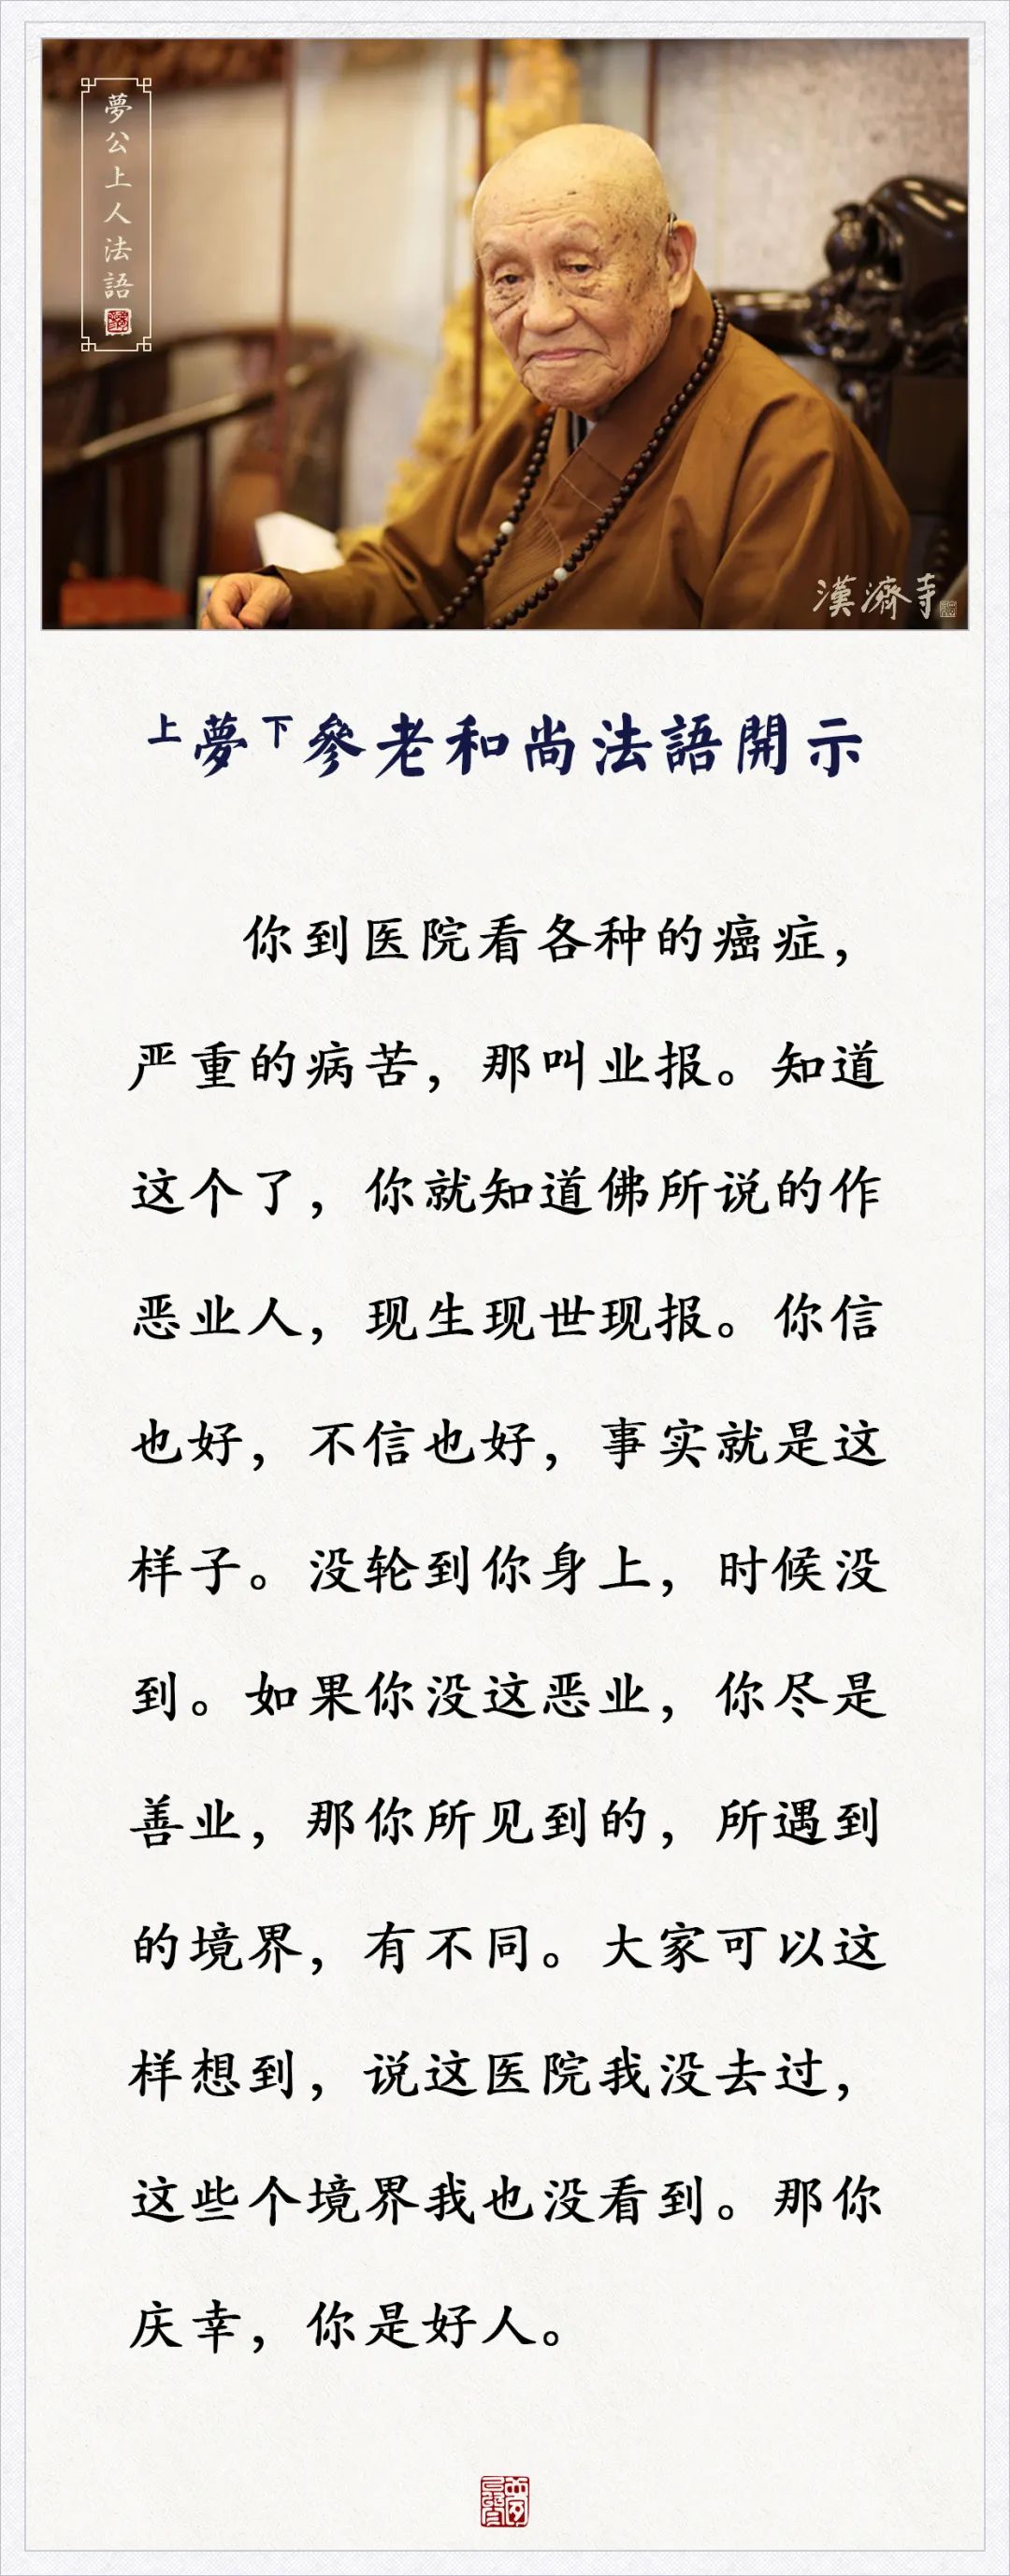 夢公上人法語
漢濟寺
上夢下參老和尚法語開示
你到医院看各种的癌症，
严重的病苦，那叫业报。知道
这个了，你就知道佛所说的作
恶业人，现生现世现报。你信
也好，不信也好，事实就是这
样子。没轮到你身上，时候没
到。如果你没这恶业，你尽是
善业，那你所见到的，所遇到
的境界，有不同。大家可以这
样想到，说这医院我没去过，
这些个境界我也没看到。那你
庆幸，你是好人。